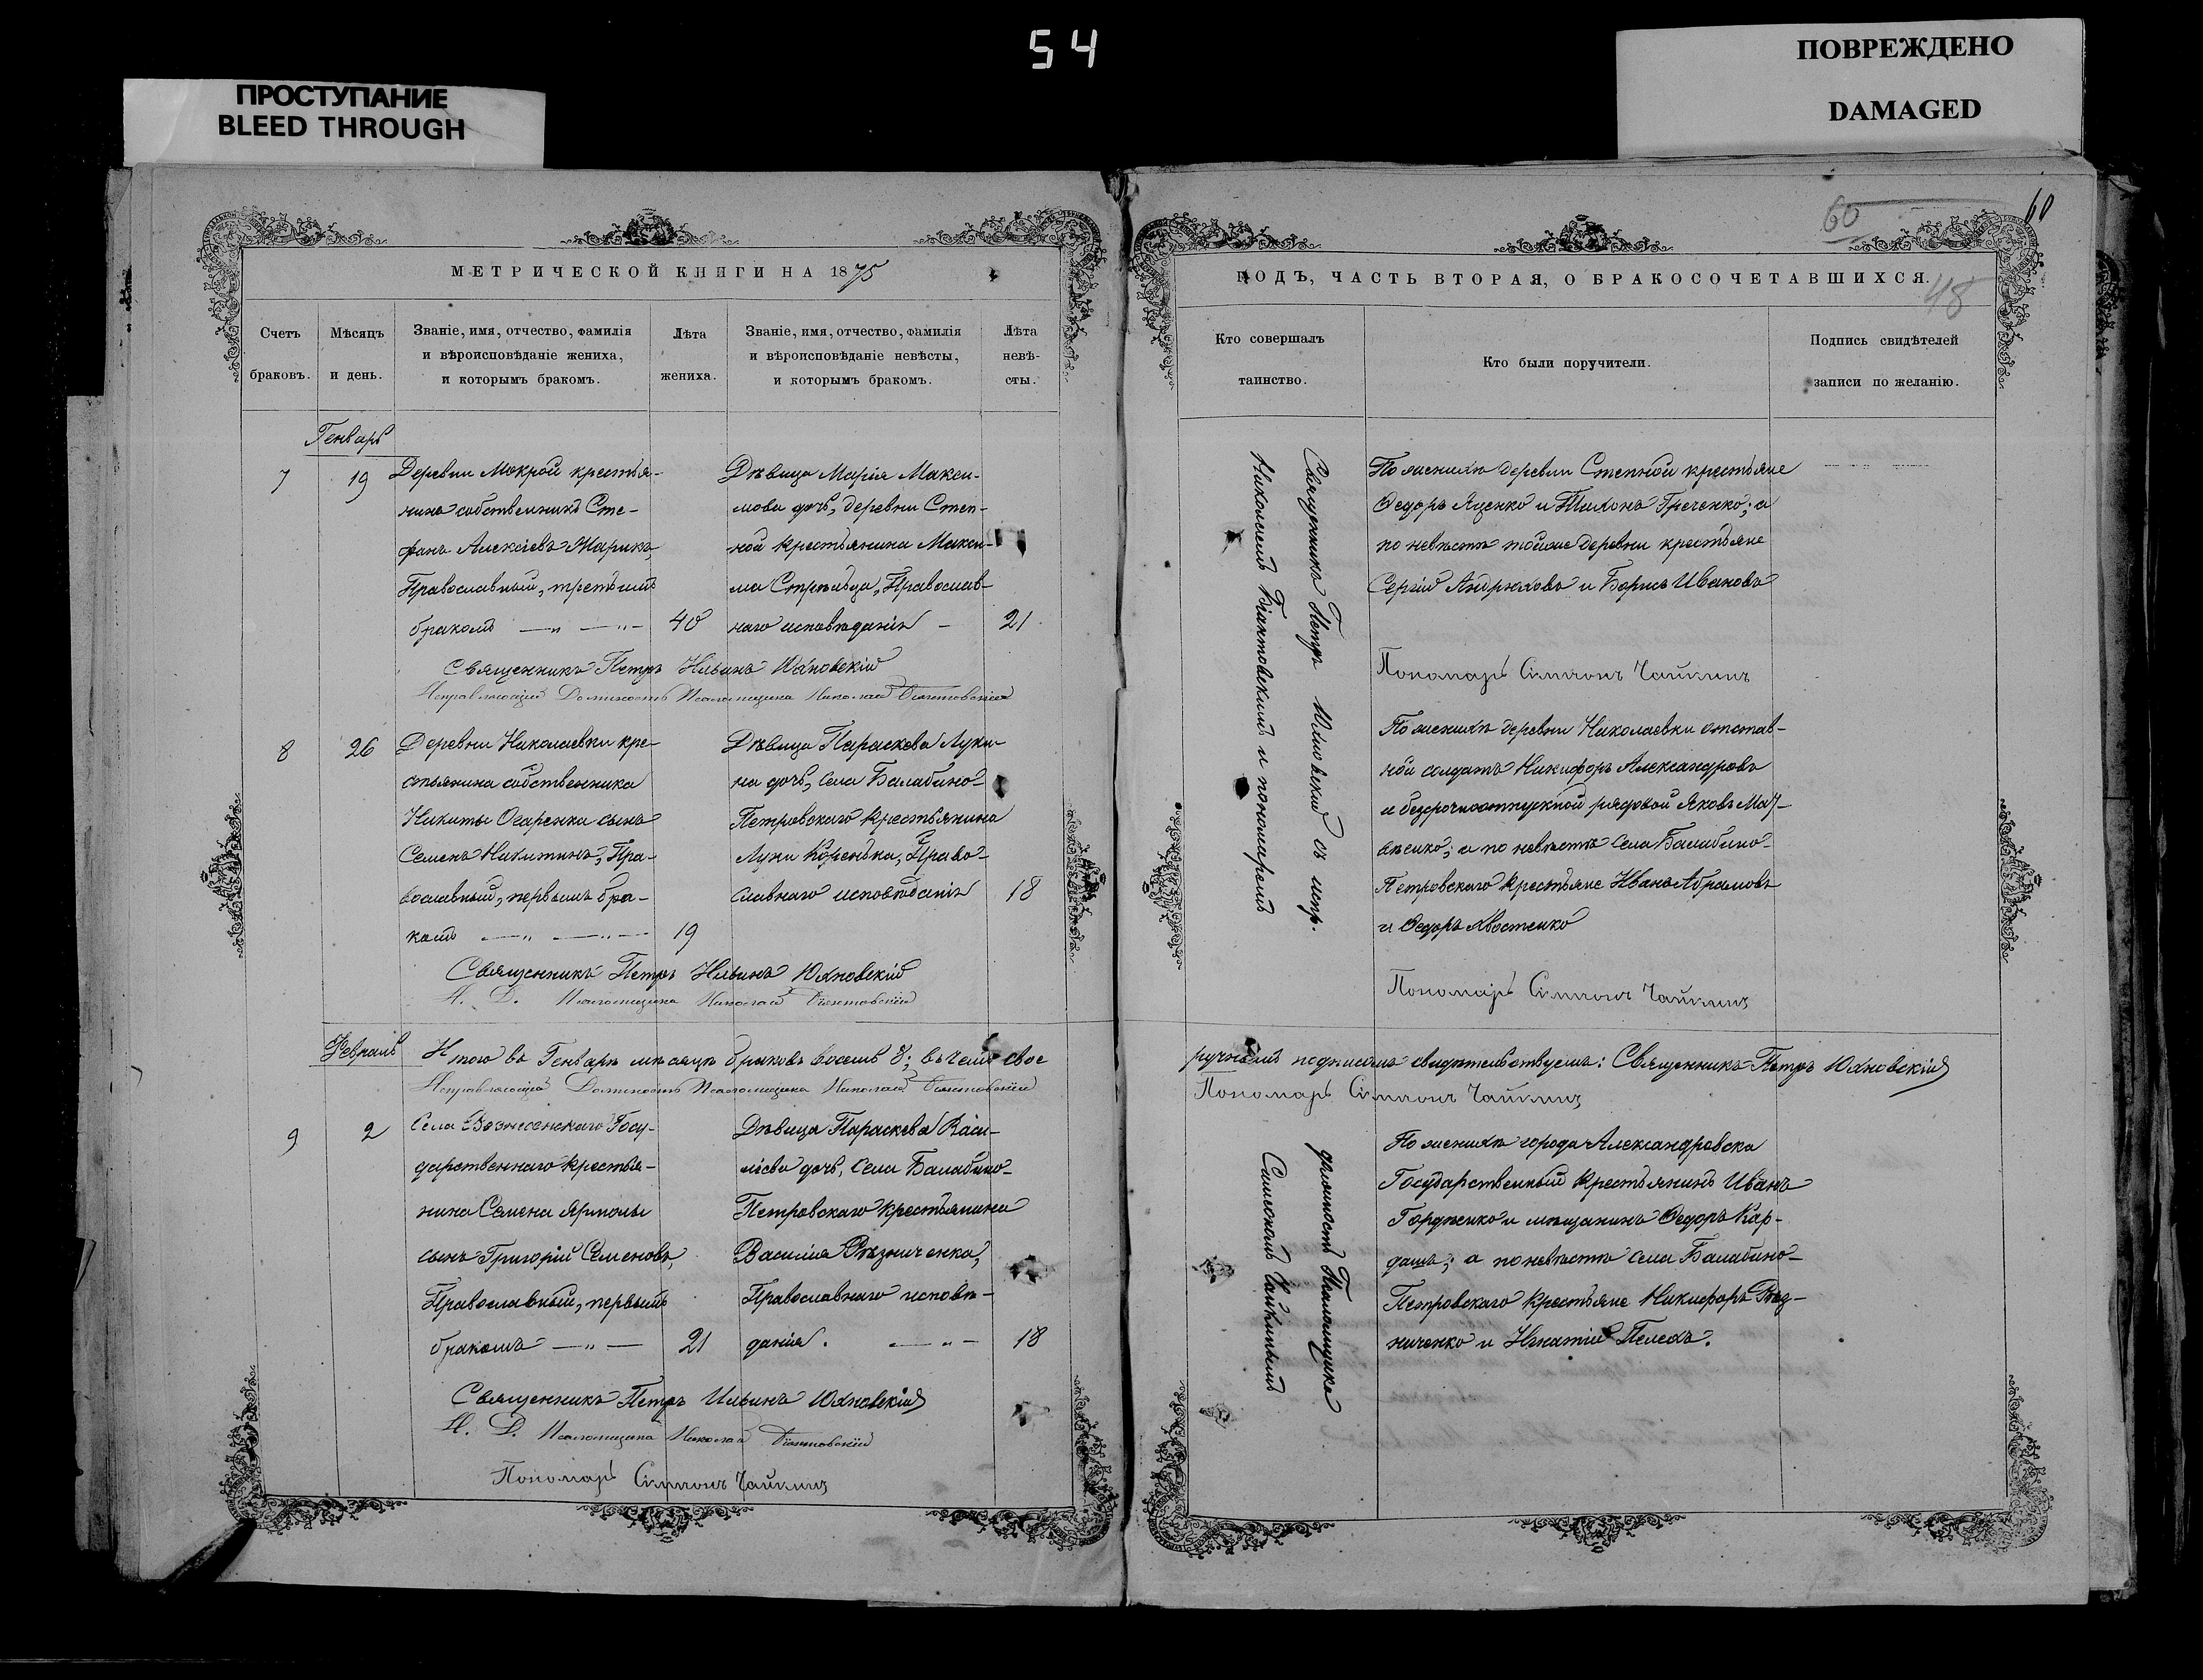 54
ПРОСТУПАНИЕ
BLEED THROUGH
ПОВРЕЖДЕНО
DAMAGED
60
60
48
МЕТРИЧЕСКОЙ КНИГИ НА 1875
Счетъ
браковъ.
Мѣсяцъ
и день.
Званіе, имя, отчество, фамилія
и вѣроисповѣданіе жениха,
и которымъ бракомъ.
Лѣта
жениха.
Званіе, имя, отчество, фамилія
и вѣроисповѣданіе невѣсты,
и которымъ бракомъ.
Лѣта
невѣ-
сты.
Генварь
7
19
Деревни Мокрой крестья-
нина собственника Сте-
фанъ Алексіевъ Жарикъ,
Православный, третьимъ
бракомъ
40
Дѣвица Марія Макси-
мова дочь, деревни Степ-
ной крестьянина Макси-
ма Стрѣльца, Православ-
наго исповѣданія
21
Священникъ Петръ Ильинъ Юхновскій
Исправляющій Должность Псаломщика Николай
8
26
Деревни Николаевки кре-
стьянина собственника
Никиты Огаренка сынъ
Семенъ Никитинъ, Пра-
вославный, первымъ бра-
комъ
19
Дѣвица Параскева Луки-
на дочь, села Балабино-
Петровскаго крестьянина
Луки Коренька, Право-
славнаго исповѣданія
18
Священникъ Петръ Ильинъ Юхновскій
И. Д. Псаломщика Николай
Февраль
Итого въ Генварѣ мѣсяцѣ браковъ восемь 8; въ чемъ свое
Исправляющій Должность Псаломщика Николай
9
2
Села Вознесенскаго Госу-
дарственнаго крестья-
нина Семена Ярмолы
сынъ Григорій Семеновъ,
Православный, первымъ
бракомъ
21
Дѣвица Параскева Васи-
ліева дочь, села Балабино-
Петровскаго крестьянина
Василія Рѣзниченка,
Православнаго исповѣ-
данія.
18
Священникъ Петръ Ильинъ Юхновскій
И. Д. Псаломщика Николай
Пономарь Симеонъ Чайкинъ
ГОДЪ, ЧАСТЬ ВТОРАЯ, О БРАКОСОЧЕТАВШИХСЯ.
Кто совершалъ
таинство.
Кто были поручители.
Подпись свидѣтелей
записи по желанію.
Священникъ Петръ Юхновскій съ испр.
Николаемъ и пономаремъ
По женихѣ деревни Степной крестьяне
Федоръ Яценко и Тихонъ Греченко; а
по невѣстѣ тойже деревни крестьяне
Сергій Андрюховъ и Борисъ Ивановъ
Пономарь Симеонъ Чайкинъ
По женихѣ деревни Николаевки отстав-
ной солдатъ Никифоръ Александровъ
и безсрочноотпускной рядовой Яковъ
а по невѣстѣ села Балабино-
Петровскаго крестьяне Иванъ Абрамовъ
и Федоръ Хвостенко
Пономарь Симеонъ Чайкинъ
ручнымъ подписомъ свидѣтельствуемъ: Священникъ Петръ Юхновскій
Пономарь Симеонъ Чайкинъ
должность Псаломщика
Симеономъ Чайкинымъ
По женихѣ города Александровска
Государственный крестьянинъ Иванъ
Гордѣенко и мѣщанинъ Федоръ Кар-
дашъ; а по невѣстѣ села Балабино-
Петровскаго крестьяне Никифоръ Рѣз-
ниченко и Игнатій Пелехъ.